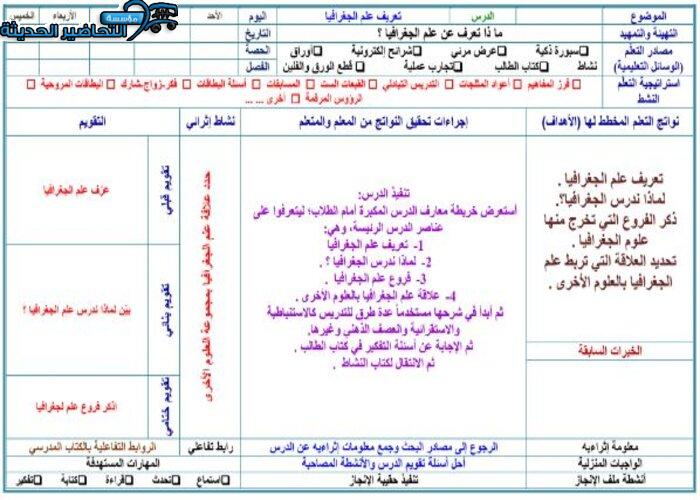 مؤسسة
التحاضير الحديثة
الموضوع الدرس تعريف علم الجغرافيا اليوم الأحد الأربعاء الخميس
التهيئة والتمهيد ما ذا تعرف عن علم الجغرافيا ؟ التاريخ
مصادر التعلم سبورة ذكية عرض مرئي شرائح إلكترونية أوراق الحصة
(الوسائل التعليمية) نشاط كتاب الطالب تجارب عملية قطع الورق والفلين الفصل
استراتيجية التعلم فرز المفاهيم أعواد المثلجات التدريس التبادلي القبعات الست المسابقات أسئلة البطاقات فكر-زواج-شارك البطاقات المروحية
النشط الرؤوس المرقمة أخرى ... ...
نواتج التعلم المخطط لها (الأهداف) إجراءات تحقيق النواتج من المعلم والمتعلم نشاط إثرائي التقويم
تعريف علم الجغرافيا .
لماذا ندرس الجغرافيا؟.
ذكر الفروع التي تخرج منها
علوم الجغرافيا .
تحديد العلاقة التي تربط علم
الجغرافيا بالعلوم الأخرى .
الخبرات السابقة
تنفيذ الدرس:
أستعرض خريطة معارف الدرس المكبرة أمام الطلاب؛ ليتعرفوا على
عناصر الدرس الرئيسة، وهي:
1- تعريف علم الجغرافيا
2- لماذا ندرس الجغرافيا ؟ .
3- فروع علم الجغرافيا .
4- علاقة علم الجغرافيا بالعلوم الأخرى .
ثم أبدأ في شرحها مستخدماً عدة طرق للتدريس كالاستنباطية
والاستقرائية والعصف الذهني وغيرها.
ثم الإجابة عن أسئلة التفكير في كتاب الطالب .
ثم الانتقال لكتاب النشاط .
حدد علاقة علم الجغرافيا بمجموعة العلوم الأخرى
تقويم قبلي
عرّف علم الجغرافيا
تقويم بنائي
بيّن لماذا ندرس علم الجغرافيا ؟
تقويم ختامي
اذكر فروع علم لجغرافيا
معلومة إثرائيه الرجوع إلى مصادر البحث وجمع معلومات إثرائيه عن الدرس رابط تفاعلي الروابط التفاعلية بالكتاب المدرسي
الواجبات المنزلية أحل أسئلة تقويم الدرس والأنشطة المصاحبة المهارات المستهدفة
أنشطة ملف الإنجاز تنفيذ حقيبة الإنجاز استماع تحدث قراءة كتابة تفكير